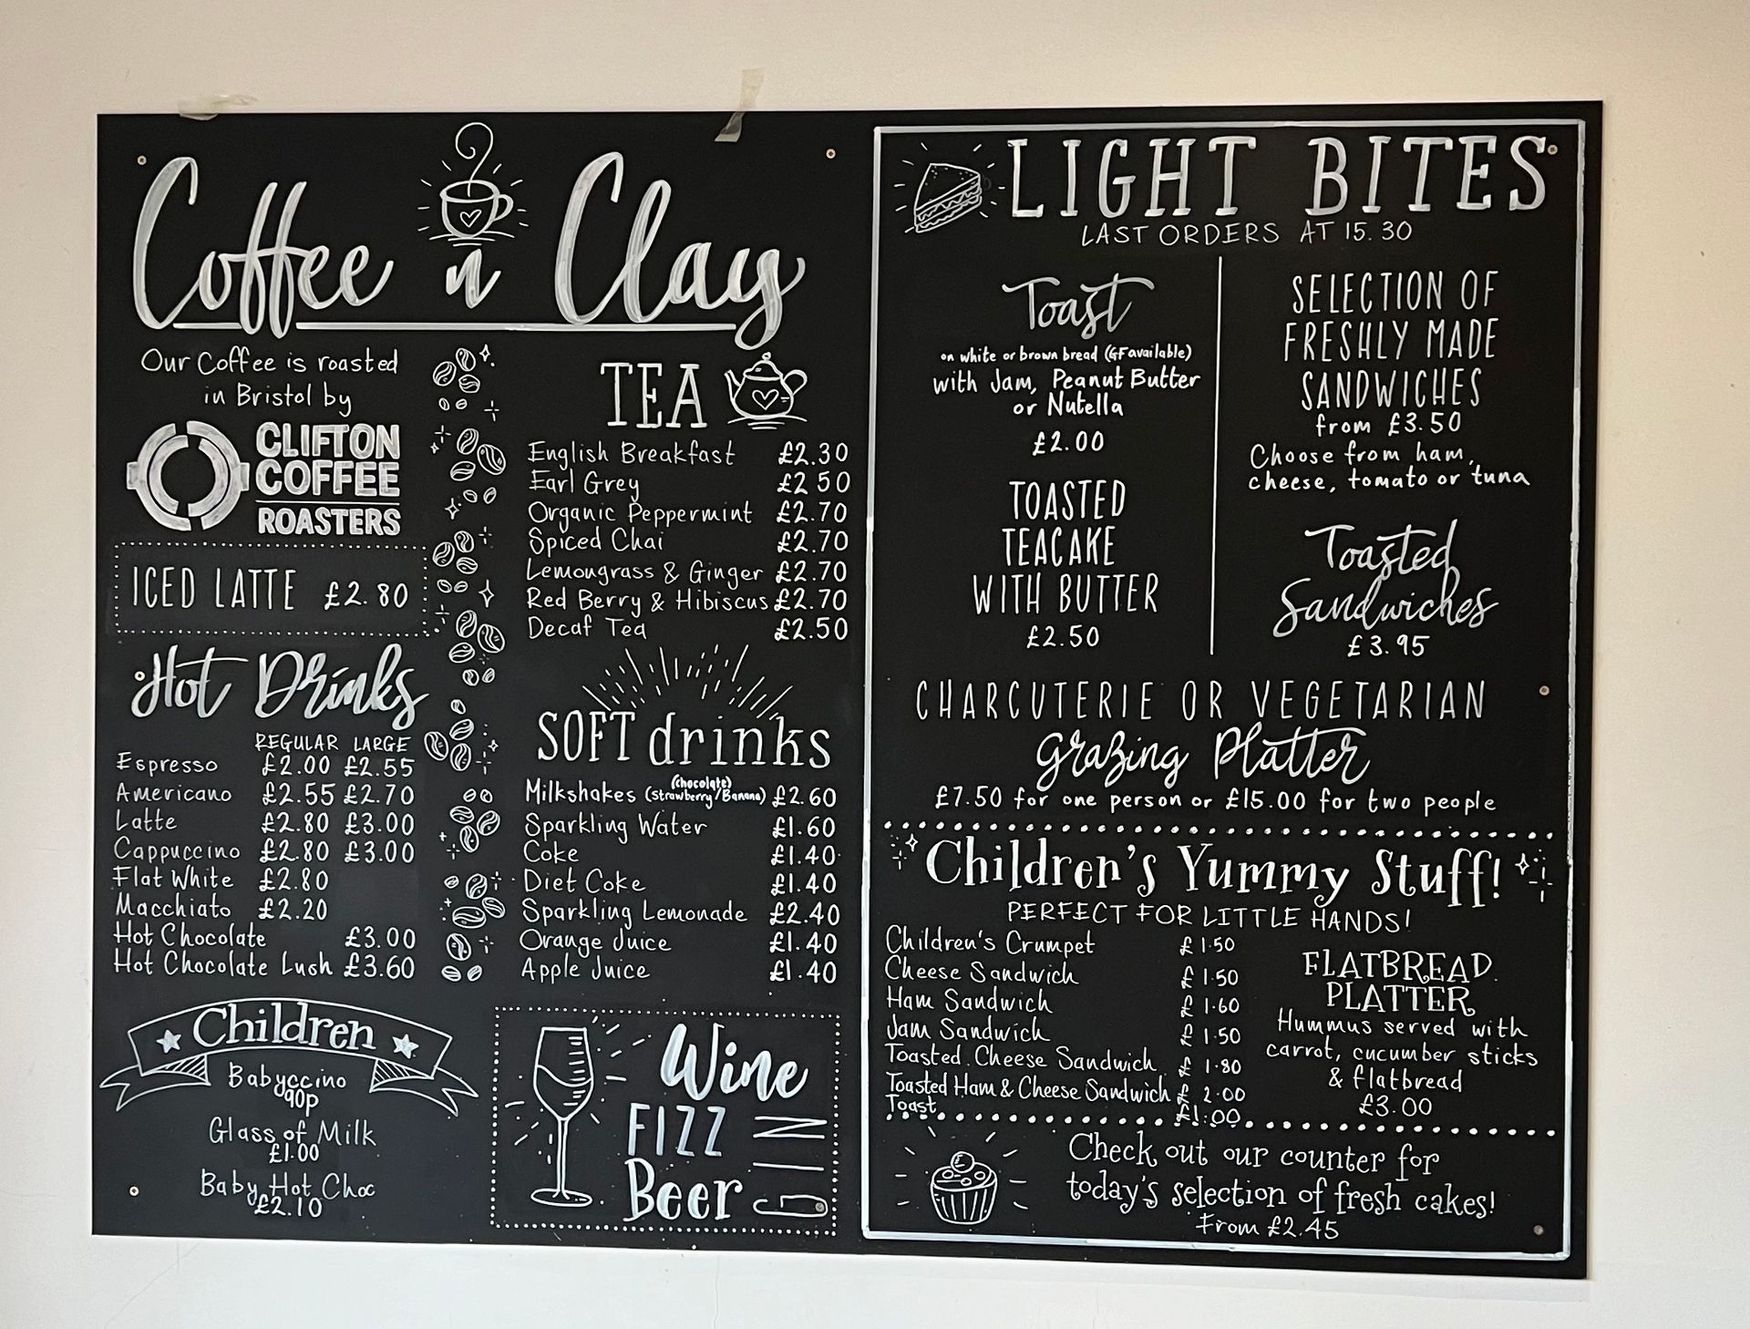 Coffee n Clay
Our Coffee is roasted
in Bristol by
CLIFTON
COFFEE
ROASTERS
ICED LATTE £2.80
Hot Drinks
REGULAR LARGE
Espresso £2.00 £2.55
Americano £2.55 £2.70
Latte £2.80 £3.00
Cappuccino £2.80 £3.00
Flat White £2.80
Macchiato £2.20
Hot Chocolate £3.00
Hot Chocolate Lush £3.60
Children
Babyccino
90p
Glass of Milk
£1.00
Baby Hot Choc
£2.10
TEA
English Breakfast £2.30
Earl Grey £2 50
Organic Peppermint £2.70
Spiced Chai £2.70
Lemongrass & Ginger £2.70
Red Berry & Hibiscus £2.70
Decaf Tea £2.50
SOFT drinks
(chocolate)
Milkshakes (Strawberry/Banana) £2.60
Sparkling Water £1.60
Coke £1.40
Diet Coke £1.40
Sparkling Lemonade £2.40
Orange Juice £1.40
Apple Juice £1.40
Wine
FIZZ
Beer
LIGHT BITES
LAST ORDERS AT 15.30
Toast
on white or brown bread (GF available)
with Jam, Peanut Butter
or Nutella
£2.00
TOASTED
TEACAKE
WITH BUTTER
£2.50
SELECTION OF
FRESHLY MADE
SANDWICHES
from £3.50
Choose from ham,
cheese, tomato or tuna
Toasted
Sandwiches
£3.95
CHARCUTERIE OR VEGETARIAN
Grazing Platter
£7.50 for one person or £15.00 for two people
Children's Yummy Stuff!
PERFECT FOR LITTLE HANDS!
Children's Crumpet £1.50
Cheese Sandwich £1.50
Ham Sandwich £1.60
Jam Sandwich £1.50
Toasted Cheese Sandwich £1.80
Toasted Ham & Cheese Sandwich £2.00
Toast £1.00
FLATBREAD
PLATTER
Hummus served with
carrot, cucumber sticks
& flatbread
£3.00
Check out our counter for
today's selection of fresh cakes!
From £2.45